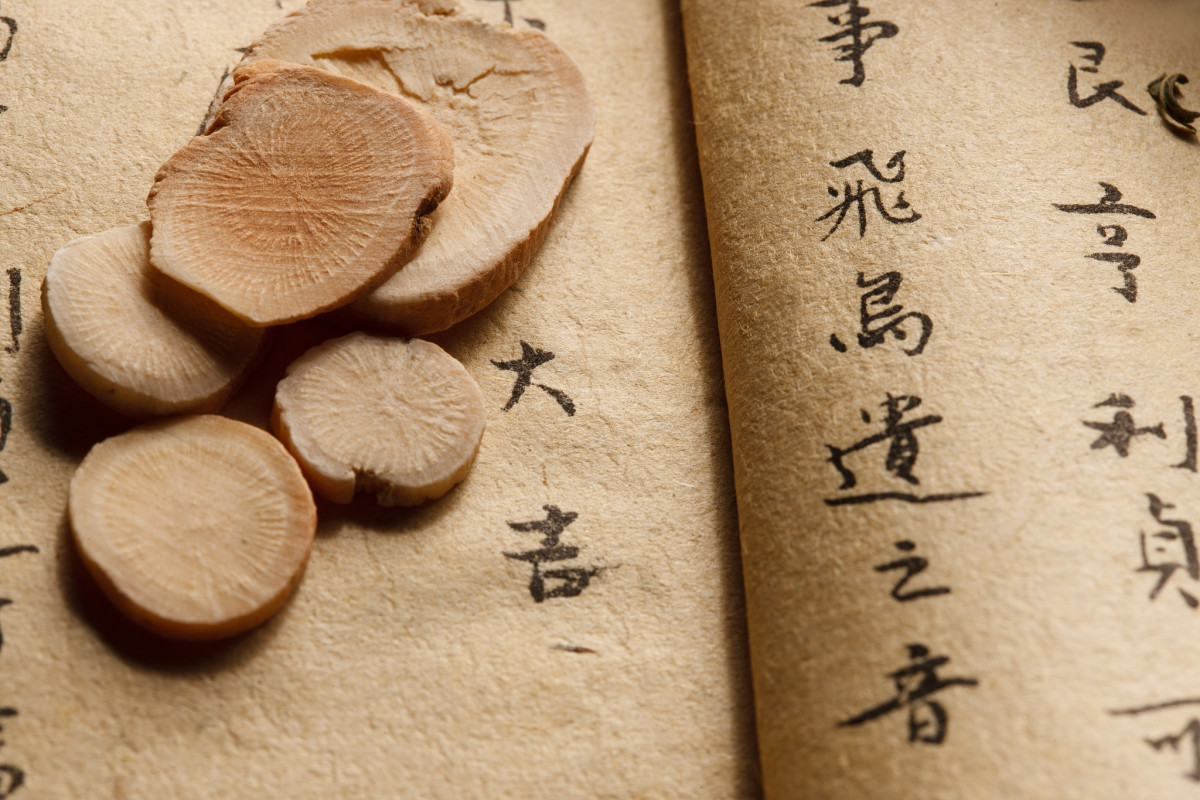 艮亨利貞可
事飛鳥遺之音
大吉